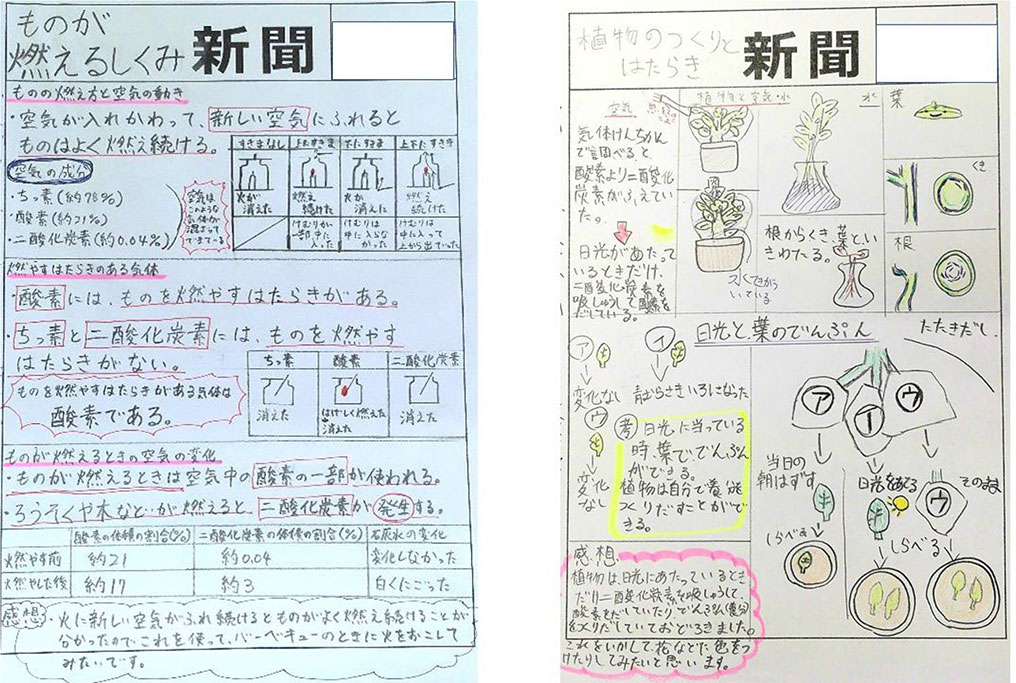 ものが
燃えるしくみ
新聞
ものの燃え方と空気の動き
・空気が入れかわって、新しい空気にふれると
ものはよく燃え続ける。
空気の成分
・ちっ素(約78%)
・酸素(約21%)
・二酸化炭素(約0.04%)
空気は
このような
気体が
混ざって
できている
すきまなし
上にすきま
下にすきま
上下にすきま
火が
消えた
燃え
続けた
火が
消えた
燃え
続けた
けむりが
一部、中に
入った
けむりは
中に入らな
かった
けむりは
中に入って
上から出ていった
燃やすはたらきのある気体
・酸素には、ものを燃やすはたらきがある。
・ちっ素と二酸化炭素には、ものを燃やす
はたらきがない。
ものを燃やすはたらきがある気体は
酸素である。
ちっ素
酸素
二酸化炭素
消えた
はげしく燃えた
消えた
消えた
ものが燃えるときの空気の変化
・ものが燃えるときは空気中の酸素の一部が使われる。
・ろうそくや木などが燃えると、二酸化炭素が発生する。
酸素の体積の割合(%)
二酸化炭素の体積の割合(%)
石灰水の変化
燃やす前
約21
約0.04
変化しなかった
燃やした後
約17
約3
白くにごった
感想
・火に新しい空気がふれ続けるとものがよく燃え続けることが
分かったのでこれを使って、バーベキューのときに火をおこして
みたいです。
植物のつくりと
はたらき
新聞
空気
植物と空気・水
水
葉
気体けんちかん
で調べると
酸素より二酸化
炭素がふえてい
た。
日光があたって
いるときだけ、
二酸化炭素を
吸しゅうして酸素を
だしている。
根からくき、葉と、い
きわたる。
くき
根
日光と葉のでんぷん
たたきだし
ア
イ
変化なし
青むらさきいろになった
ウ
変化
なし
考
日光に当っている
時、葉ででんぷん
ができる。
植物は自分で養分を
つくりだすことがで
きる。
ア
イ
ウ
当日の
朝はずす
日光をあてる
そのまま
ウ
しらべる
しらべる
感想
植物は、日光にあたっているとき
だけ二酸化炭素を吸しゅうして、
酸素をだしていたりでんぷん(養分)
をつくりだしていておどろきました。
これをいかして、花などに色をつ
けたりしてみたいと思います。